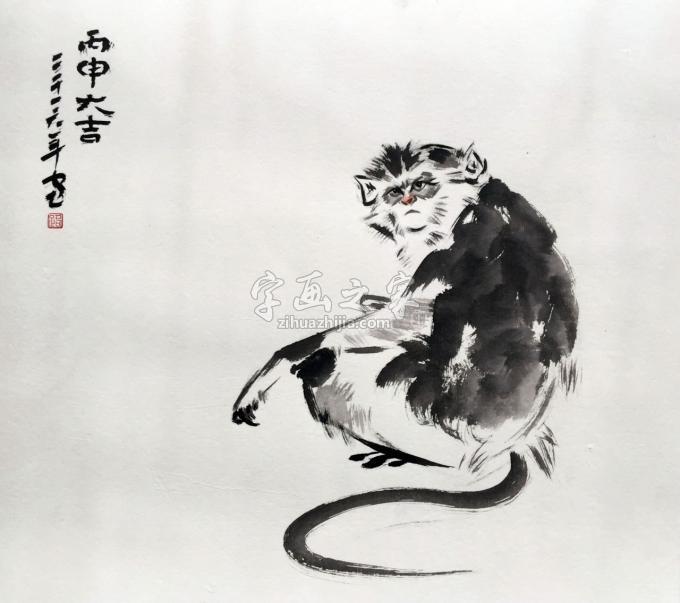 丙申大吉
二零一六年
字画之家
zihuazhijia.com